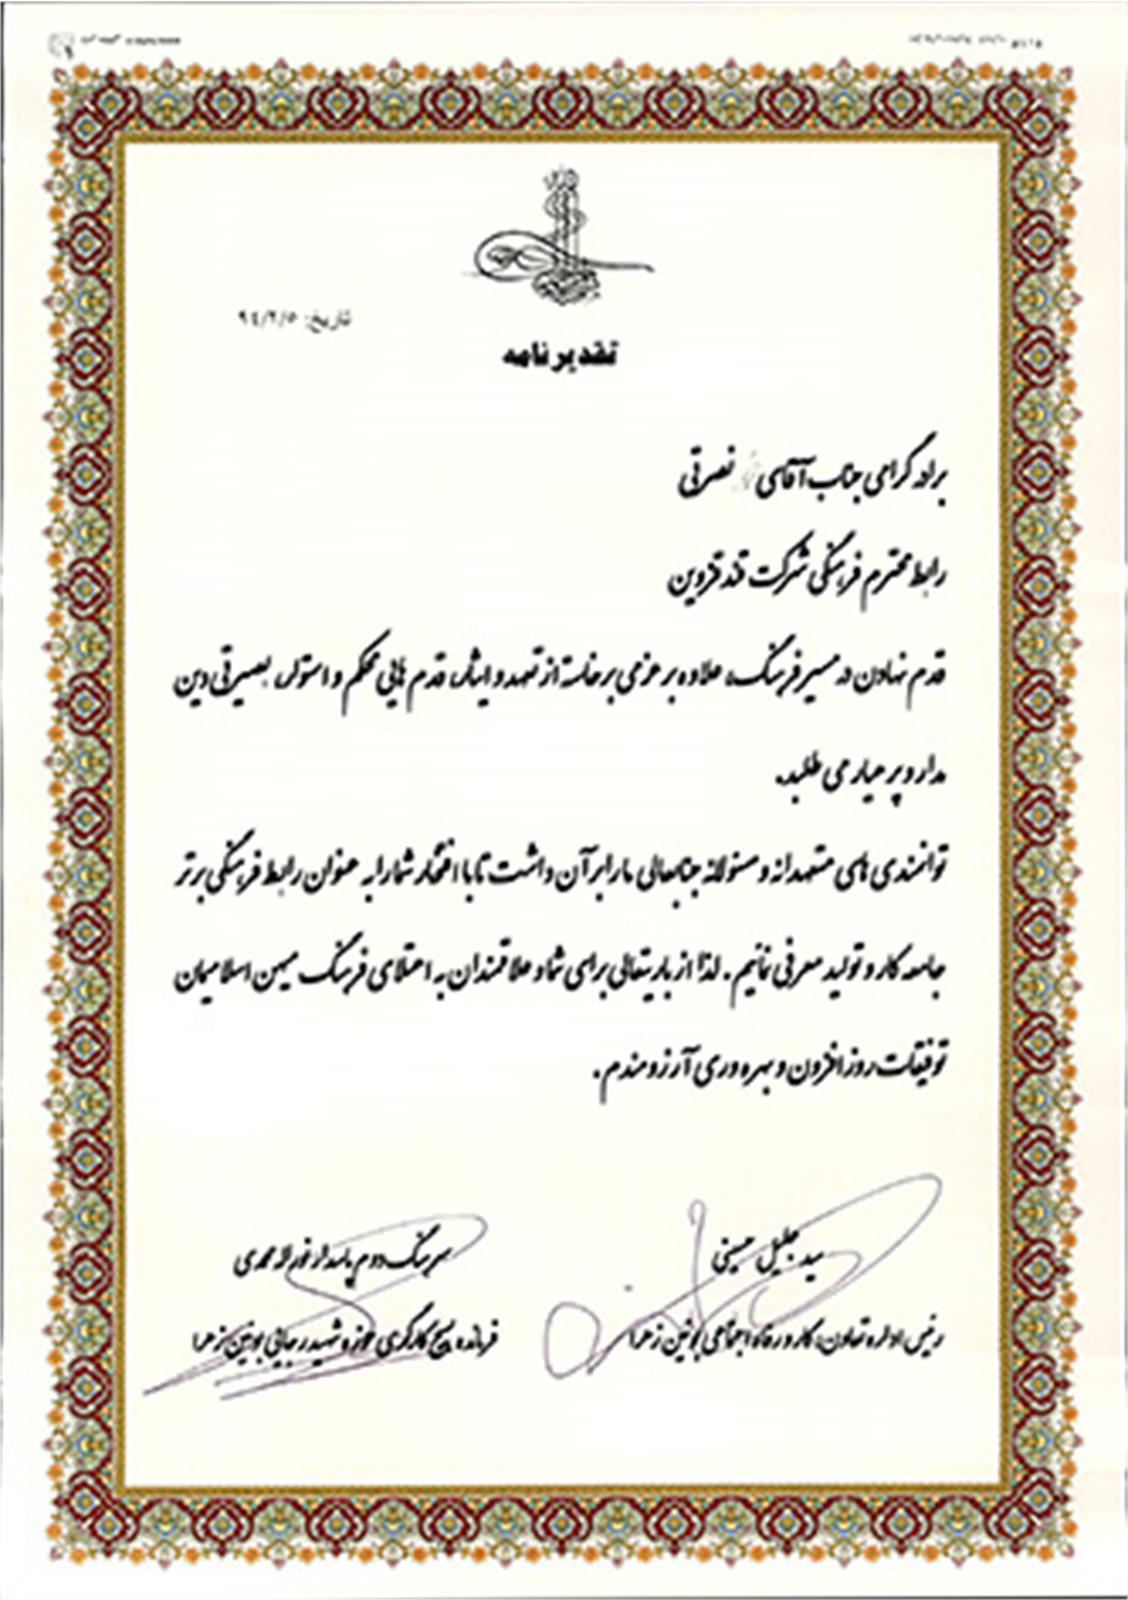 تاریخ: ۹۴/۲/۵
تقدیرنامه
برادر گرامی جناب آقای نصرتی
رابط محترم فرهنگی شرکت قند قزوین
قدم نهادن در مسیر فرهنگ، علاوه بر عزمی برخاسته از تعهد و ایثار، قدم هایی محکم و استوار، بصیرتی دین
مدار و پر عیار می طلبد.
توانمندی های متعهدانه و مسئولانه جنابعالی ما را بر آن داشت تا با افتخار شما را به عنوان رابط فرهنگی برتر
جامعه کار و تولید معرفی نمائیم. لذا از باریتعالی برای شما و علاقمندان به اعتلای فرهنگ میهن اسلامیمان
توفیقات روز افزون و بهره وری آرزومندم.
سید جلیل حسینی
رئیس اداره تعاون، کار و رفاه اجتماعی بوئین زهرا
سرهنگ دوم پاسدار نورالله محمدی
فرمانده بسیج کارگری حوزه شهید رجایی بوئین زهرا